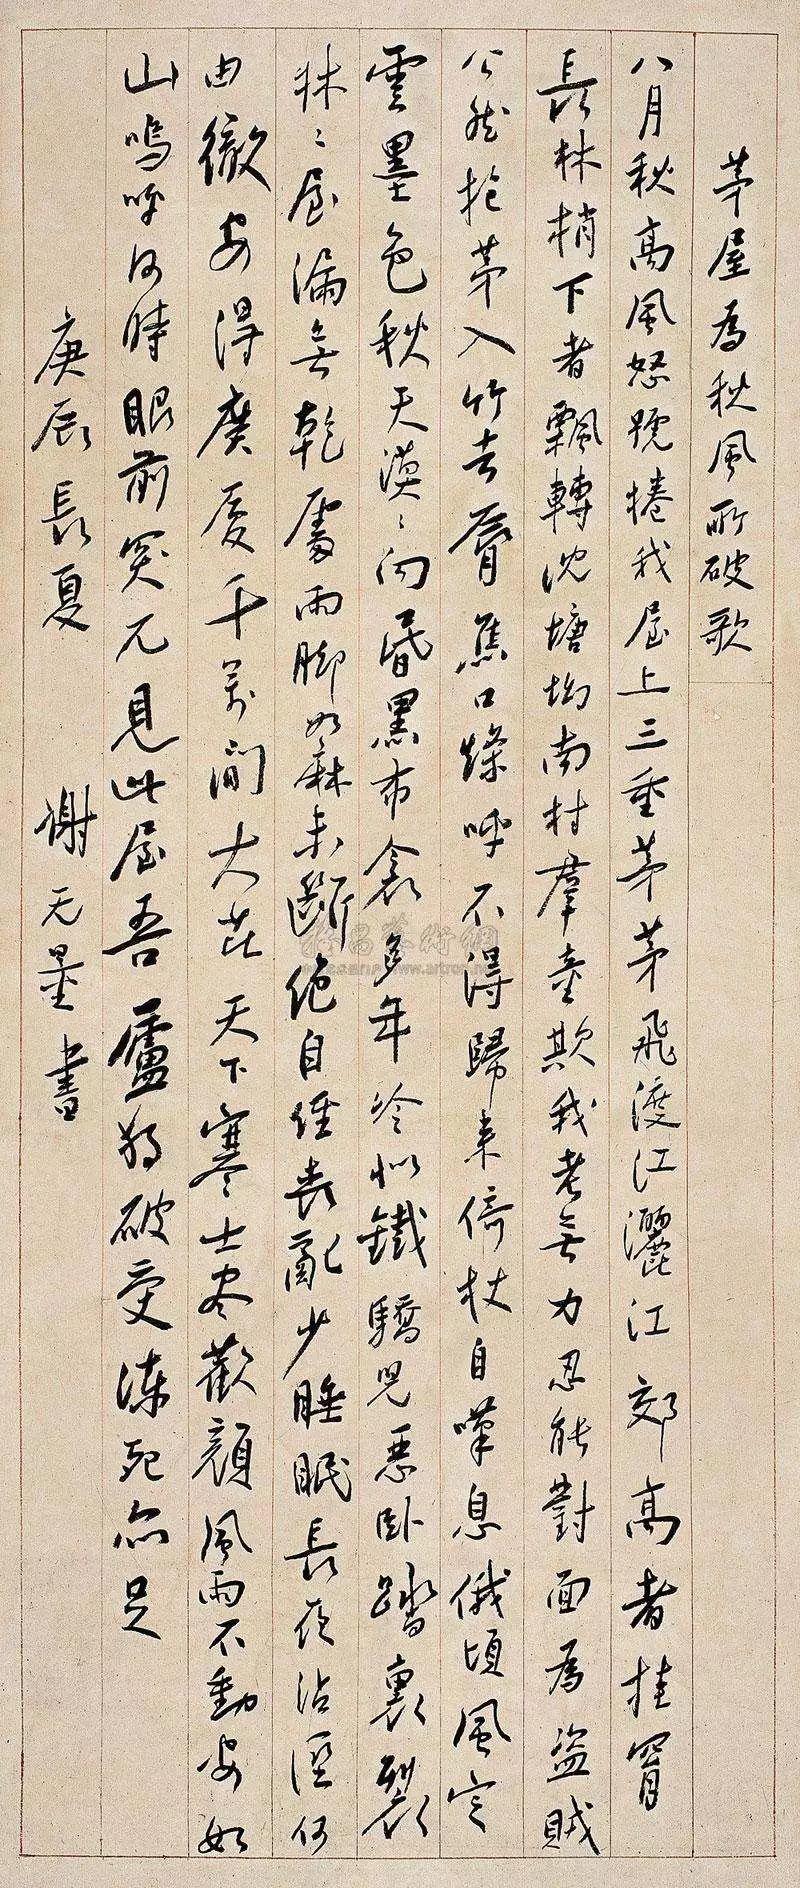 茅屋為秋風所破歌
八月秋高風怒號捲我屋上三重茅茅飛渡江灑江郊高者挂罥
長林梢下者飄轉沈塘坳南村羣童欺我老無力忍能對面為盜賊
公然抱茅入竹去脣焦口燥呼不得歸来倚杖自嘆息俄頃風定
雲墨色秋天漠〻向昬黑布衾多年冷似鐵驕兒惡卧踏裏裂
牀〻屋漏無乾處雨脚如麻未斷絕自經喪亂少睡眠長夜沾溼何
由徹安得廣廈千萬間大庇天下寒士尽歡顏風雨不動安如
山嗚呼何時眼前突兀見此屋吾廬獨破受凍死亦足
庚辰長夏 謝无量書